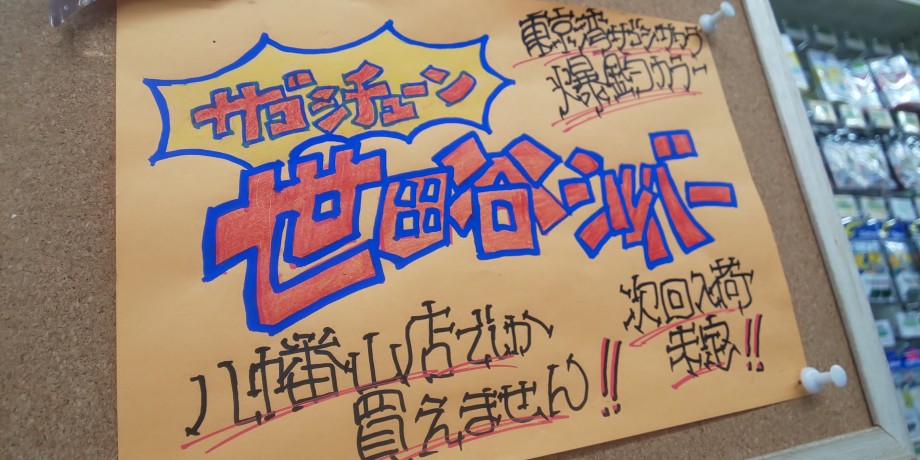 東京湾サゴシサワラ
爆釣カラー
サゴシチューン
世田谷シルバー
次回入荷
未定!!
八幡山店でしか
買えません!!